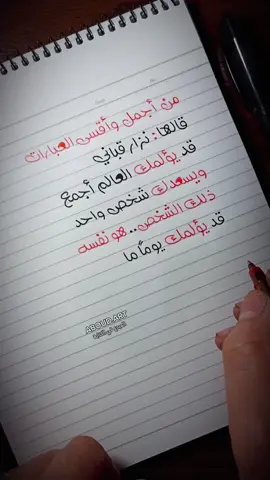 من أجمل وأقسى العبارات
قالها: نزار قباني
قد يؤلمك العالم أجمع
ويسعدك شخص واحد
ذلك الشخص.. هو نفسه
قد يؤلمك يوماً ما
ABOUD.ART